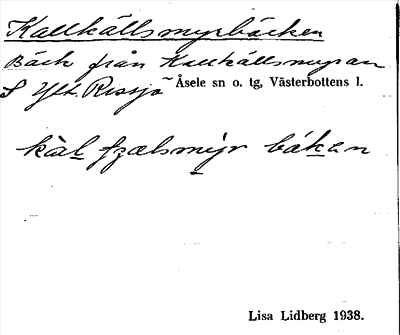 Kallkällsmyrbäcken
Bäck från Kallkällsmyran
S Ytt. Rissjö ~ Åsele sn o. tg, Västerbottens l.
Lisa Lidberg 1938.